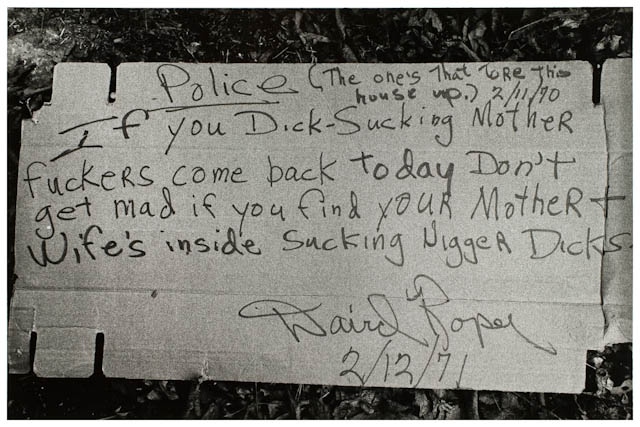 Police (The one's That tore This
house up.) 2/11/70
If you Dick-Sucking Mother
fuckers come back today Don't
get mad if you find your Mother +
Wife's inside Sucking Nigger Dicks.
Roper
2/12/71